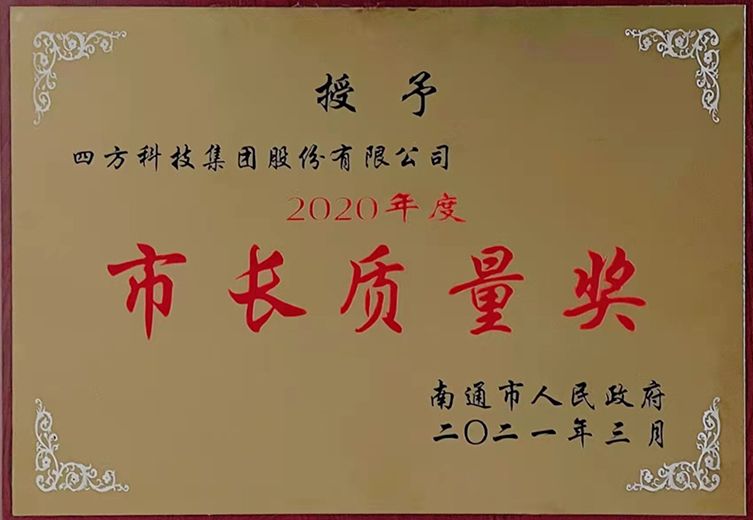 授予
四方科技集团股份有限公司
2020年度
市长质量奖
南通市人民政府
二〇二一年三月